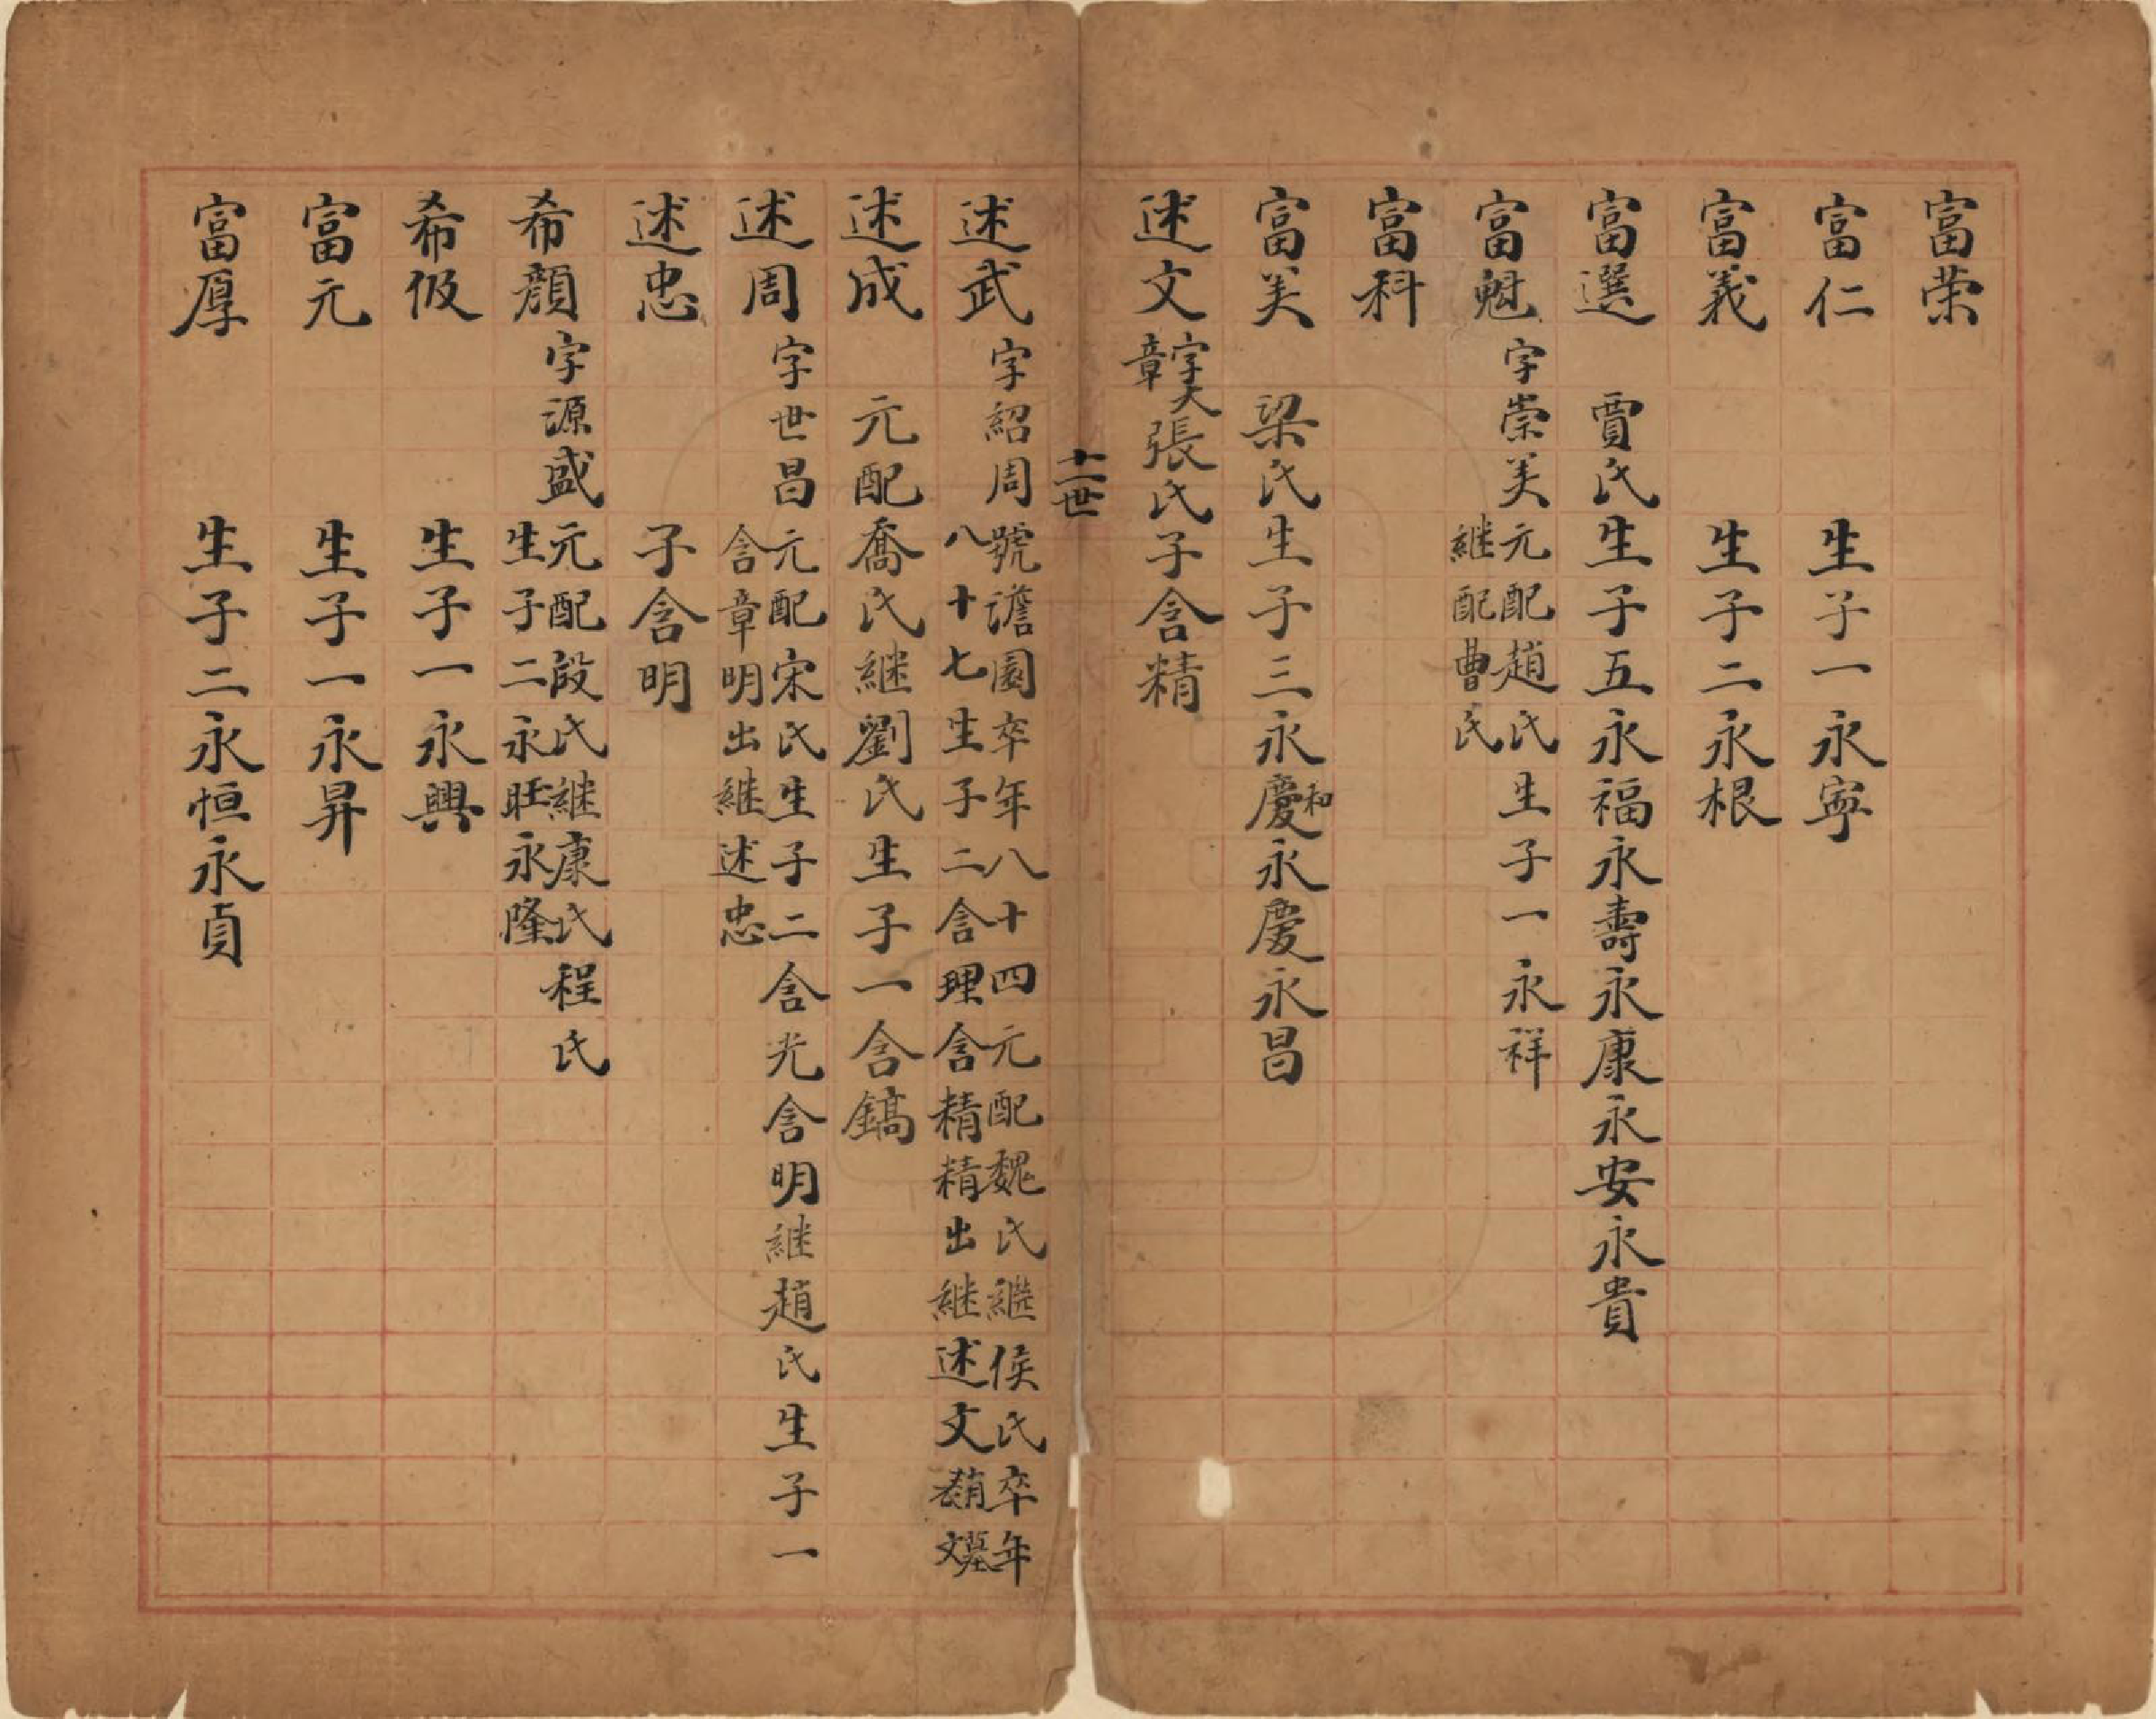 富荣
富仁 生子一永寧
富義 生子二永根
富選 賈氏生子五永福永壽永康永安永貴
富魁 字崇美元配趙氏生子一永祥
継配曹氏
富科
富美 梁氏生子三永慶和永慶永昌
述文 字大章張氏子含精
十一世
述武 字紹周號澹園卒年八十四元配魏氏繼侯氏卒年
八十七生子二含理含精精出継述文
述成 元配喬氏継劉氏生子一含鎬
述周 字世昌元配宋氏生子二含光含明継趙氏生子一
含章明出継述忠
述忠 子含明
希顏 字源盛元配段氏継康氏程氏
生子二永旺永隆
希伋 生子一永興
富元 生子一永昇
富厚 生子二永恒永貞